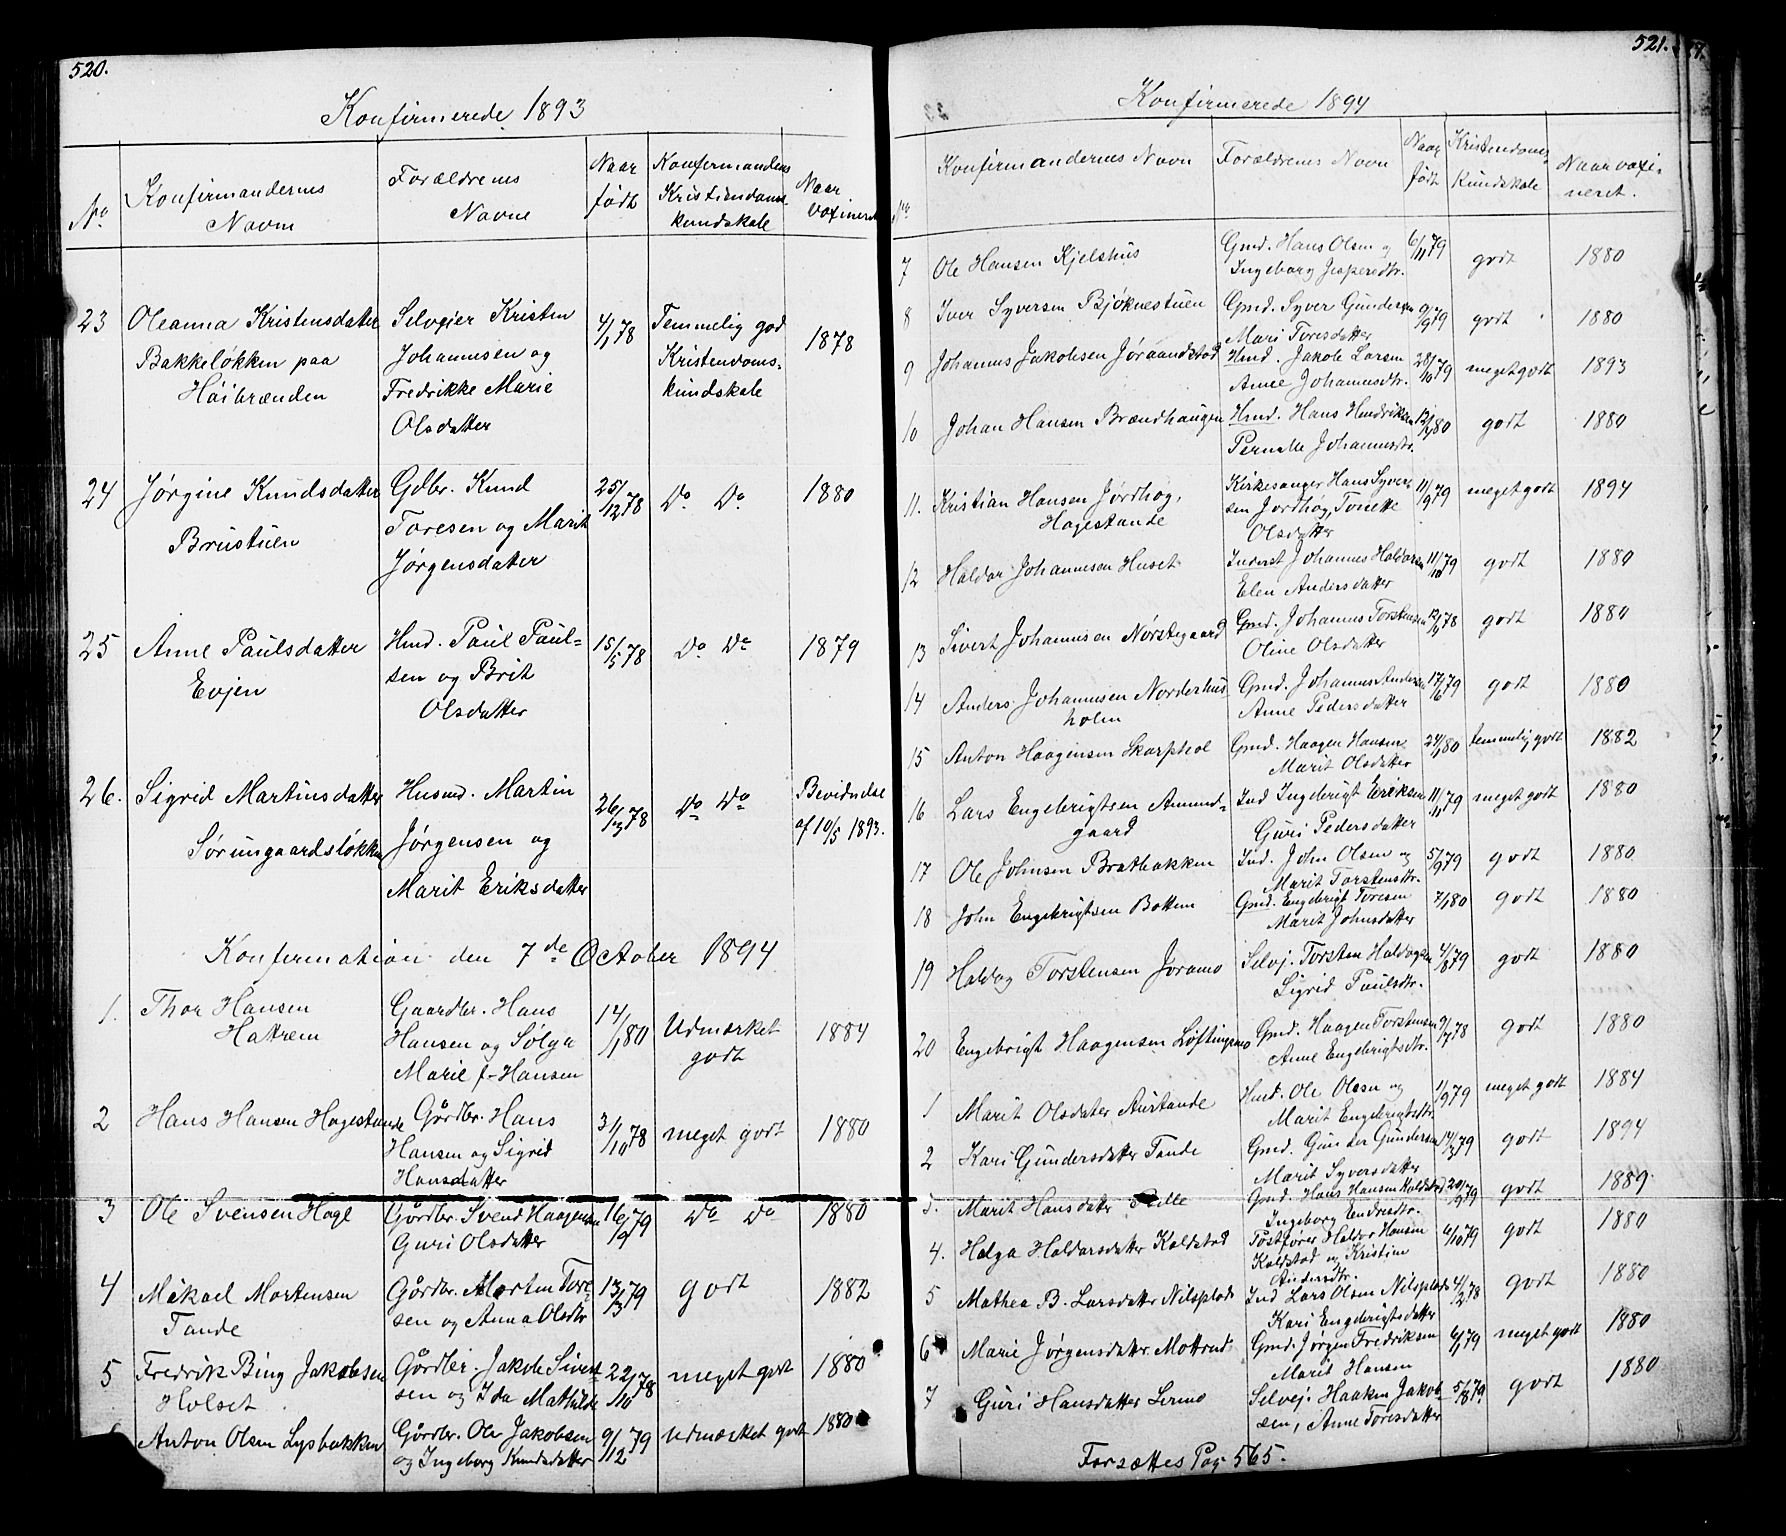 520.
Konfirmerede 1893
No
Konfirmandernes Navn
Forældrenes Navne
Naar født
Konfirmandens Kristendoms kundskab
Naar vaxineret
23 Oleanna Kristensdatter Selveier Kristen 4/1 78 Temmelig god 1878
Bakkeløkken paa Johannesen og Kristendoms-
Høibrænden Fredrikke Marie kundskab
Olsdatter
24 Jørgine Knudsdatter Gdbr. Knud 25/12 78 Do Do 1880
Brustuen Toresen og Marit
Jørgensdatter
25 Anne Paulsdatter Hmd. Paul Paul- 15/5 78 Do Do 1879
Evjen sen og Brit
Olsdatter
26. Sigrid Martinsdatter Husmd. Martin 26/3 78 Do Do Bevidnelse
Sørumgaardsløkken Jørgensen og af 10/5 1893.
Marit Eriksdatter
Konfirmation den 7de October 1894
1. Thor Hansen Gaardbr. Hans 14/1 80 Udmærket 1884
Hattrem Hansen og Solga godt
Marie f. Hansen
2 Hans Hansen Hagestande Gårdbr. Hans 3/10 78 meget godt 1880
Hansen og Sigrid
Hansdatter
3 Ole Svensen Hage Gårdbr. Svend Haagensen 16/9 79 Do Do 1880
Guri Olsdatter
4 Mikael Mortensen Gårdbr. Morten Tore- 13/3 79 godt 1882
Tande sen og Anna Olsdtr
5 Fredrik Bing Jakobsen Gårdbr. Jakob Sivert- 22/10 78 meget godt 1880
Holset sen og Ida Mathilde
Anton Olsen Lysbakken Gårdbr. Ole Jakobsen 9/12 79 udmærket godt 1880
og Ingeborg Knudsdatter
521.
Konfirmerede 1894
No
Konfirmandernes Navn
Forældrenes Navn
Naar født
Kristendoms Kundskab
Naar vaxineret.
7 Ole Hansen Kjelshus Gmd. Hans Olsen og 6/11 79 godt 1880
Ingeborg Jespersdtr.
8 Iver Syversen Bjøknestuen Gmd. Syver Gundersen 9/9 79 godt 1880
Mari Toresdatter
9 Johannes Jakobsen Jøraandstad Hmd. Jakob Larsen 28/10 79 meget godt 1893
Anne Johannesdtr.
10 Johan Hansen Brændhaugen Hmd. Hans Hendriksen 80 godt 1880
Pernelle Johannesdtr.
11. Kristian Hansen Jørdhøg, Kirkesanger Hans Syver- 11/9 79 meget godt 1894
Hagestande sen Jordhøg, Tonette
Olsdatter
12 Haldor Johannesen Huset Inderst Johannes Haldorsen 11/10 79 godt 1880
Elen Andersdatter
13 Sivert Johannesen Nørstegaard Gmd. Johannes Torstensen 78 godt 1880
Oline Olsdatter
14 Anders Johannesen Norderhus Gmd. Johannes Andersen 17/6 79 godt 1880
holm Anne Pedersdatter
15 Anton Haagensen Skarphol Gmd. Haagen Hansen 24/1 80 temmelig godt 1882
Marit Olsdatter
16 Lars Engebrigtsen Amund- Ind Ingebrigt Eriksen 11/11 79 meget godt 1880
gaard Guri Pedersdatter
17 Ole Johnsen Bratbakken Ind. John Olsen og 5/9 79 godt 1880
Marit Torstensdtr.
18 John Engebrigtsen Bottem Gmd. Engebrigt Toresen 7/1 80 godt 1880
Marit Johnsdatter
19 Haldog Torstensen Joramo Selvej. Torsten Haldogsen 4/8 79 godt 1880
Sigrid Paulsdtr.
20 Engebrigt Haagensen Løftingsmo Gmd. Haagen Torstensen 9/7 78 godt 1880
Anne Engebrigtsdtr.
1 Marit Olsdater Austande Hmd. Ole Olsen og 1/9 79 meget godt 1884
Marit Engebrigtsdtr.
2 Kari Gundersdatter Tande Gmd. Gunder Gundersen 14/3 79 godt 1894
Marit Syversdatter
3. Marit Hansdater Gmd. Hans Hansen Kolstad 20/9 79 godt 1889.
Ingeborg Endresdtr.
4. Helga Haldorsdatter Koldstad Postfører Haldor Hansen 6/10 79 godt 1880
Koldstad og Kristine
Andersdtr.
5 Mathea B. Larsdatter Nilsplads Ind Lars Olsen Nilsplads 4/12 78 godt 1880
Kari Engebrigtsdatter
6 Marie Jørgensdatter Mottrud Gmd. Jørgen Fredriksen 6/1 79 meget godt 1880
Marit Hansen
7 Guri Hansdatter Lermo Selvej. Haaken Jakob- 5/8 79 godt 1880
sen, Anne Toresdatter
Forsættes Pag 565.